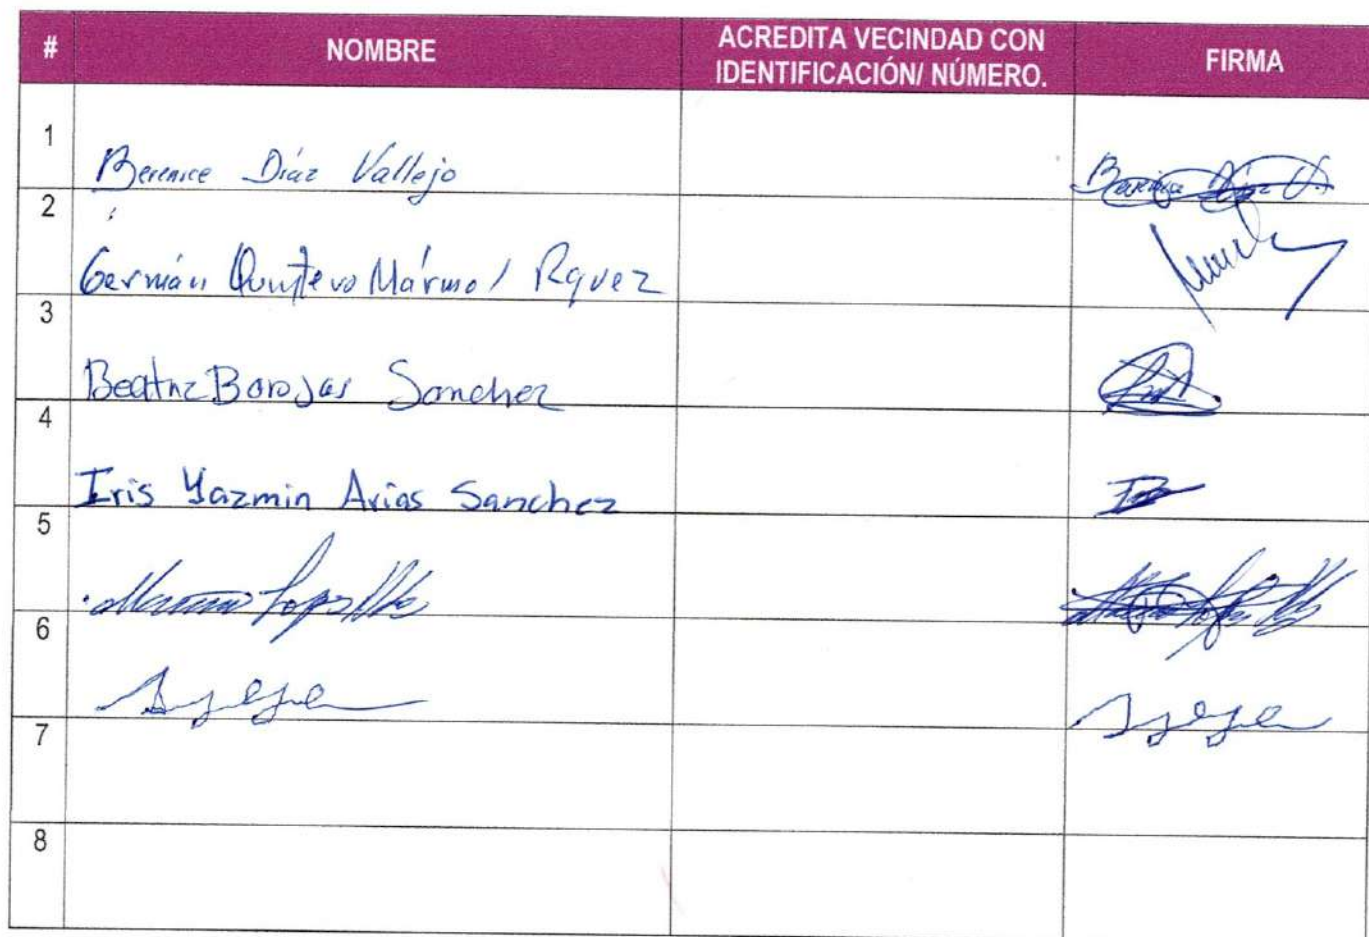 # NOMBRE ACREDITA VECINDAD CON IDENTIFICACIÓN/ NÚMERO. FIRMA
1 Berenice Díaz Vallejo Berenice Díaz V.
2 Germán Quintero Mármol Rquez
3 Beatriz Barojas Sanchez
4 Iris Yazmin Arias Sanchez
5
6
7
8